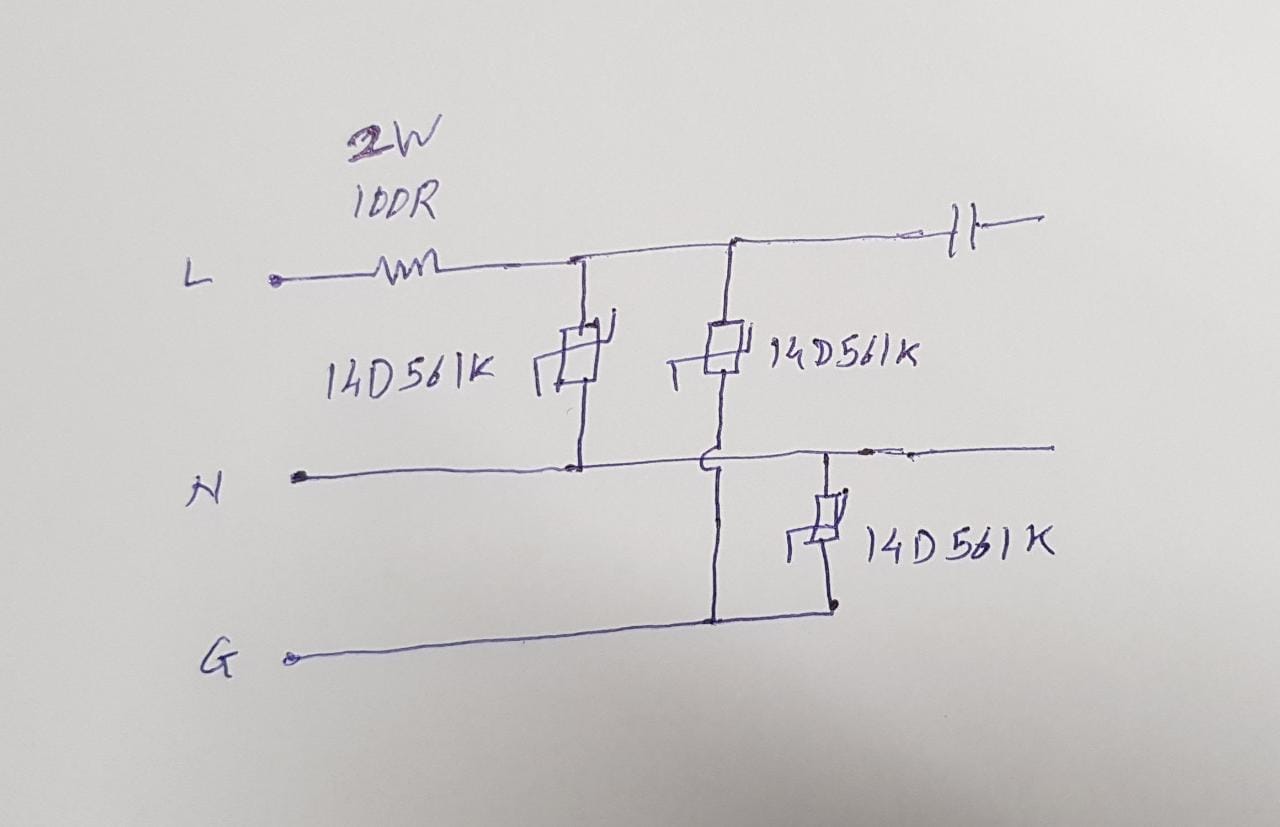 2W
100R
L
14D561K
14D561K
N
14D561K
G